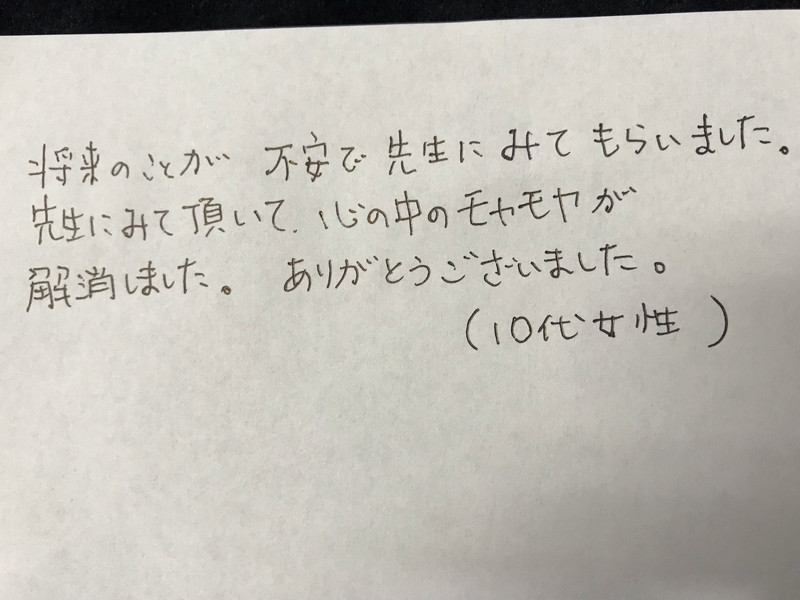 将来のことが 不安で 先生に みて もらいました。
先生にみて頂いて、心の中のモヤモヤが
解消しました。 ありがとうございました。
(10代女性)